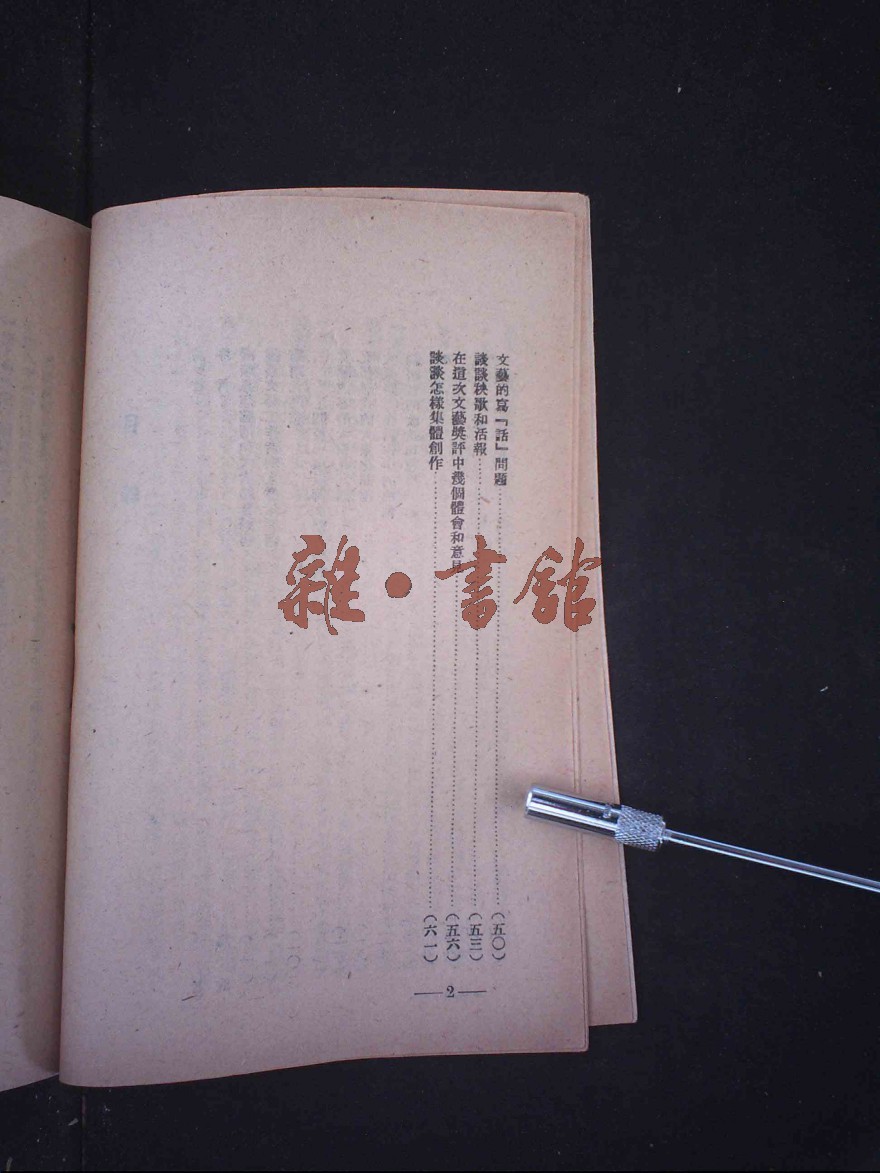 文藝的寫『話』問題……(五〇)
談談秧歌和活報……(五三)
在這次文藝獎評中幾個體會和意見……(五六)
談談怎樣集體創作……(六一)
—2—
雜·書館